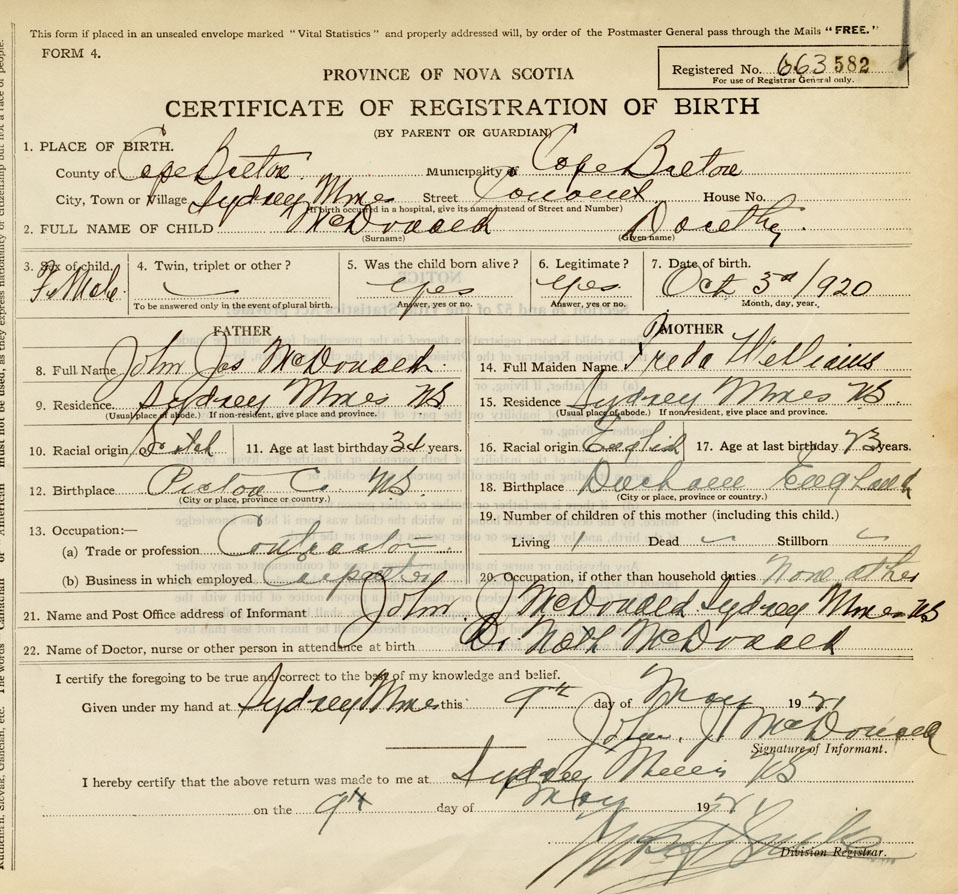 This form if placed in an unsealed envelope marked "Vital Statistics" and properly addressed will, by order of the Postmaster General pass through the Mails "FREE."
FORM 4.
Registered No. 663 582
For use of Registrar General only.
PROVINCE OF NOVA SCOTIA
CERTIFICATE OF REGISTRATION OF BIRTH
(BY PARENT OR GUARDIAN)
1. PLACE OF BIRTH.
County of Cape Breton Municipality of Cape Breton
City, Town or Village Sydney Mines Street House No.
(If birth occurred in a hospital, give its name instead of Street and Number)
2. FULL NAME OF CHILD McDonald Dorothy
(Surname) (Given name)
3. Sex of child. Female 4. Twin, triplet or other? To be answered only in the event of plural birth. 5. Was the child born alive? yes Answer, yes or no. 6. Legitimate? yes Answer, yes or no. 7. Date of birth. Oct 3rd/1920 Month, day, year.
FATHER MOTHER
8. Full Name John Jas McDonald 14. Full Maiden Name Freda Williams
9. Residence Sydney Mines NS 15. Residence Sydney Mines NS
(Usual place of abode.) If non-resident, give place and province. (Usual place of abode.) If non-resident, give place and province.
10. Racial origin Scotch 11. Age at last birthday 34 years. 16. Racial origin English 17. Age at last birthday 23 years.
12. Birthplace Pictou Co. NS 18. Birthplace England
(City or place, province or country.) (City or place, province or country.)
13. Occupation:— 19. Number of children of this mother (including this child.)
(a) Trade or profession Contractor Living 1 Dead Stillborn
(b) Business in which employed Carpenter 20. Occupation, if other than household duties None other
21. Name and Post Office address of Informant John J McDonald Sydney Mines NS
22. Name of Doctor, nurse or other person in attendance at birth Dr McDonald
I certify the foregoing to be true and correct to the best of my knowledge and belief.
Given under my hand at Sydney Mines this 9th day of May 1921
John. J. McDonald
Signature of Informant.
I hereby certify that the above return was made to me at Sydney Mines NS
on the 9th day of May 1921
Division Registrar.